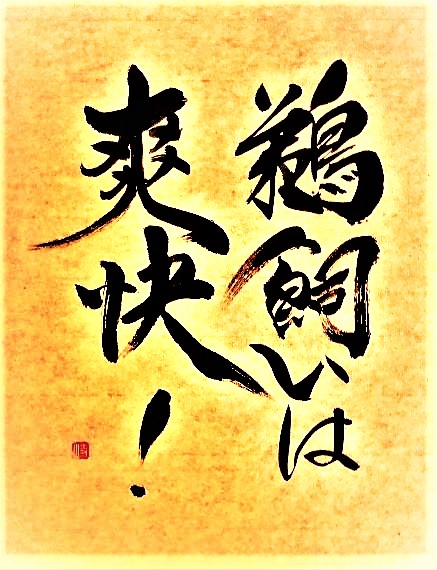 鵜飼いは
爽快！